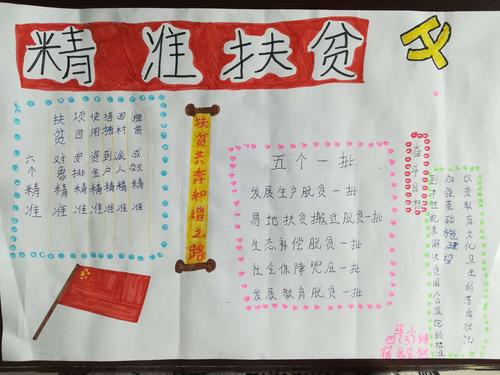 精准扶贫
六个精准
扶贫对象精准
项目安排精准
使用资金精准
措施到户精准
因村派人精准
脱贫成效精准
扶贫共奔和谐之路
五个一批
发展生产脱贫一批
易地扶贫搬迁脱贫一批
生态补偿脱贫一批
社会保障兜底一批
发展教育脱贫一批
奋斗目标
到本世纪末解决贫困人口温饱的标准
加强基础施建设
改变教育文化卫生的落后状况
马小
四(3)班